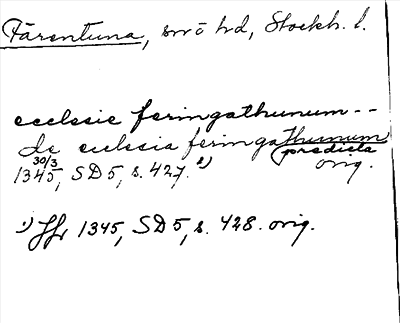 Färentuna, svö hd, Stockh. l.
ecclesie feringathunum --
de ecclesia feringathunum
predicta
30/3
1345, SD 5, s. 427. 1) orig.
1) Hfr 1345, SD 5, s. 428. orig.